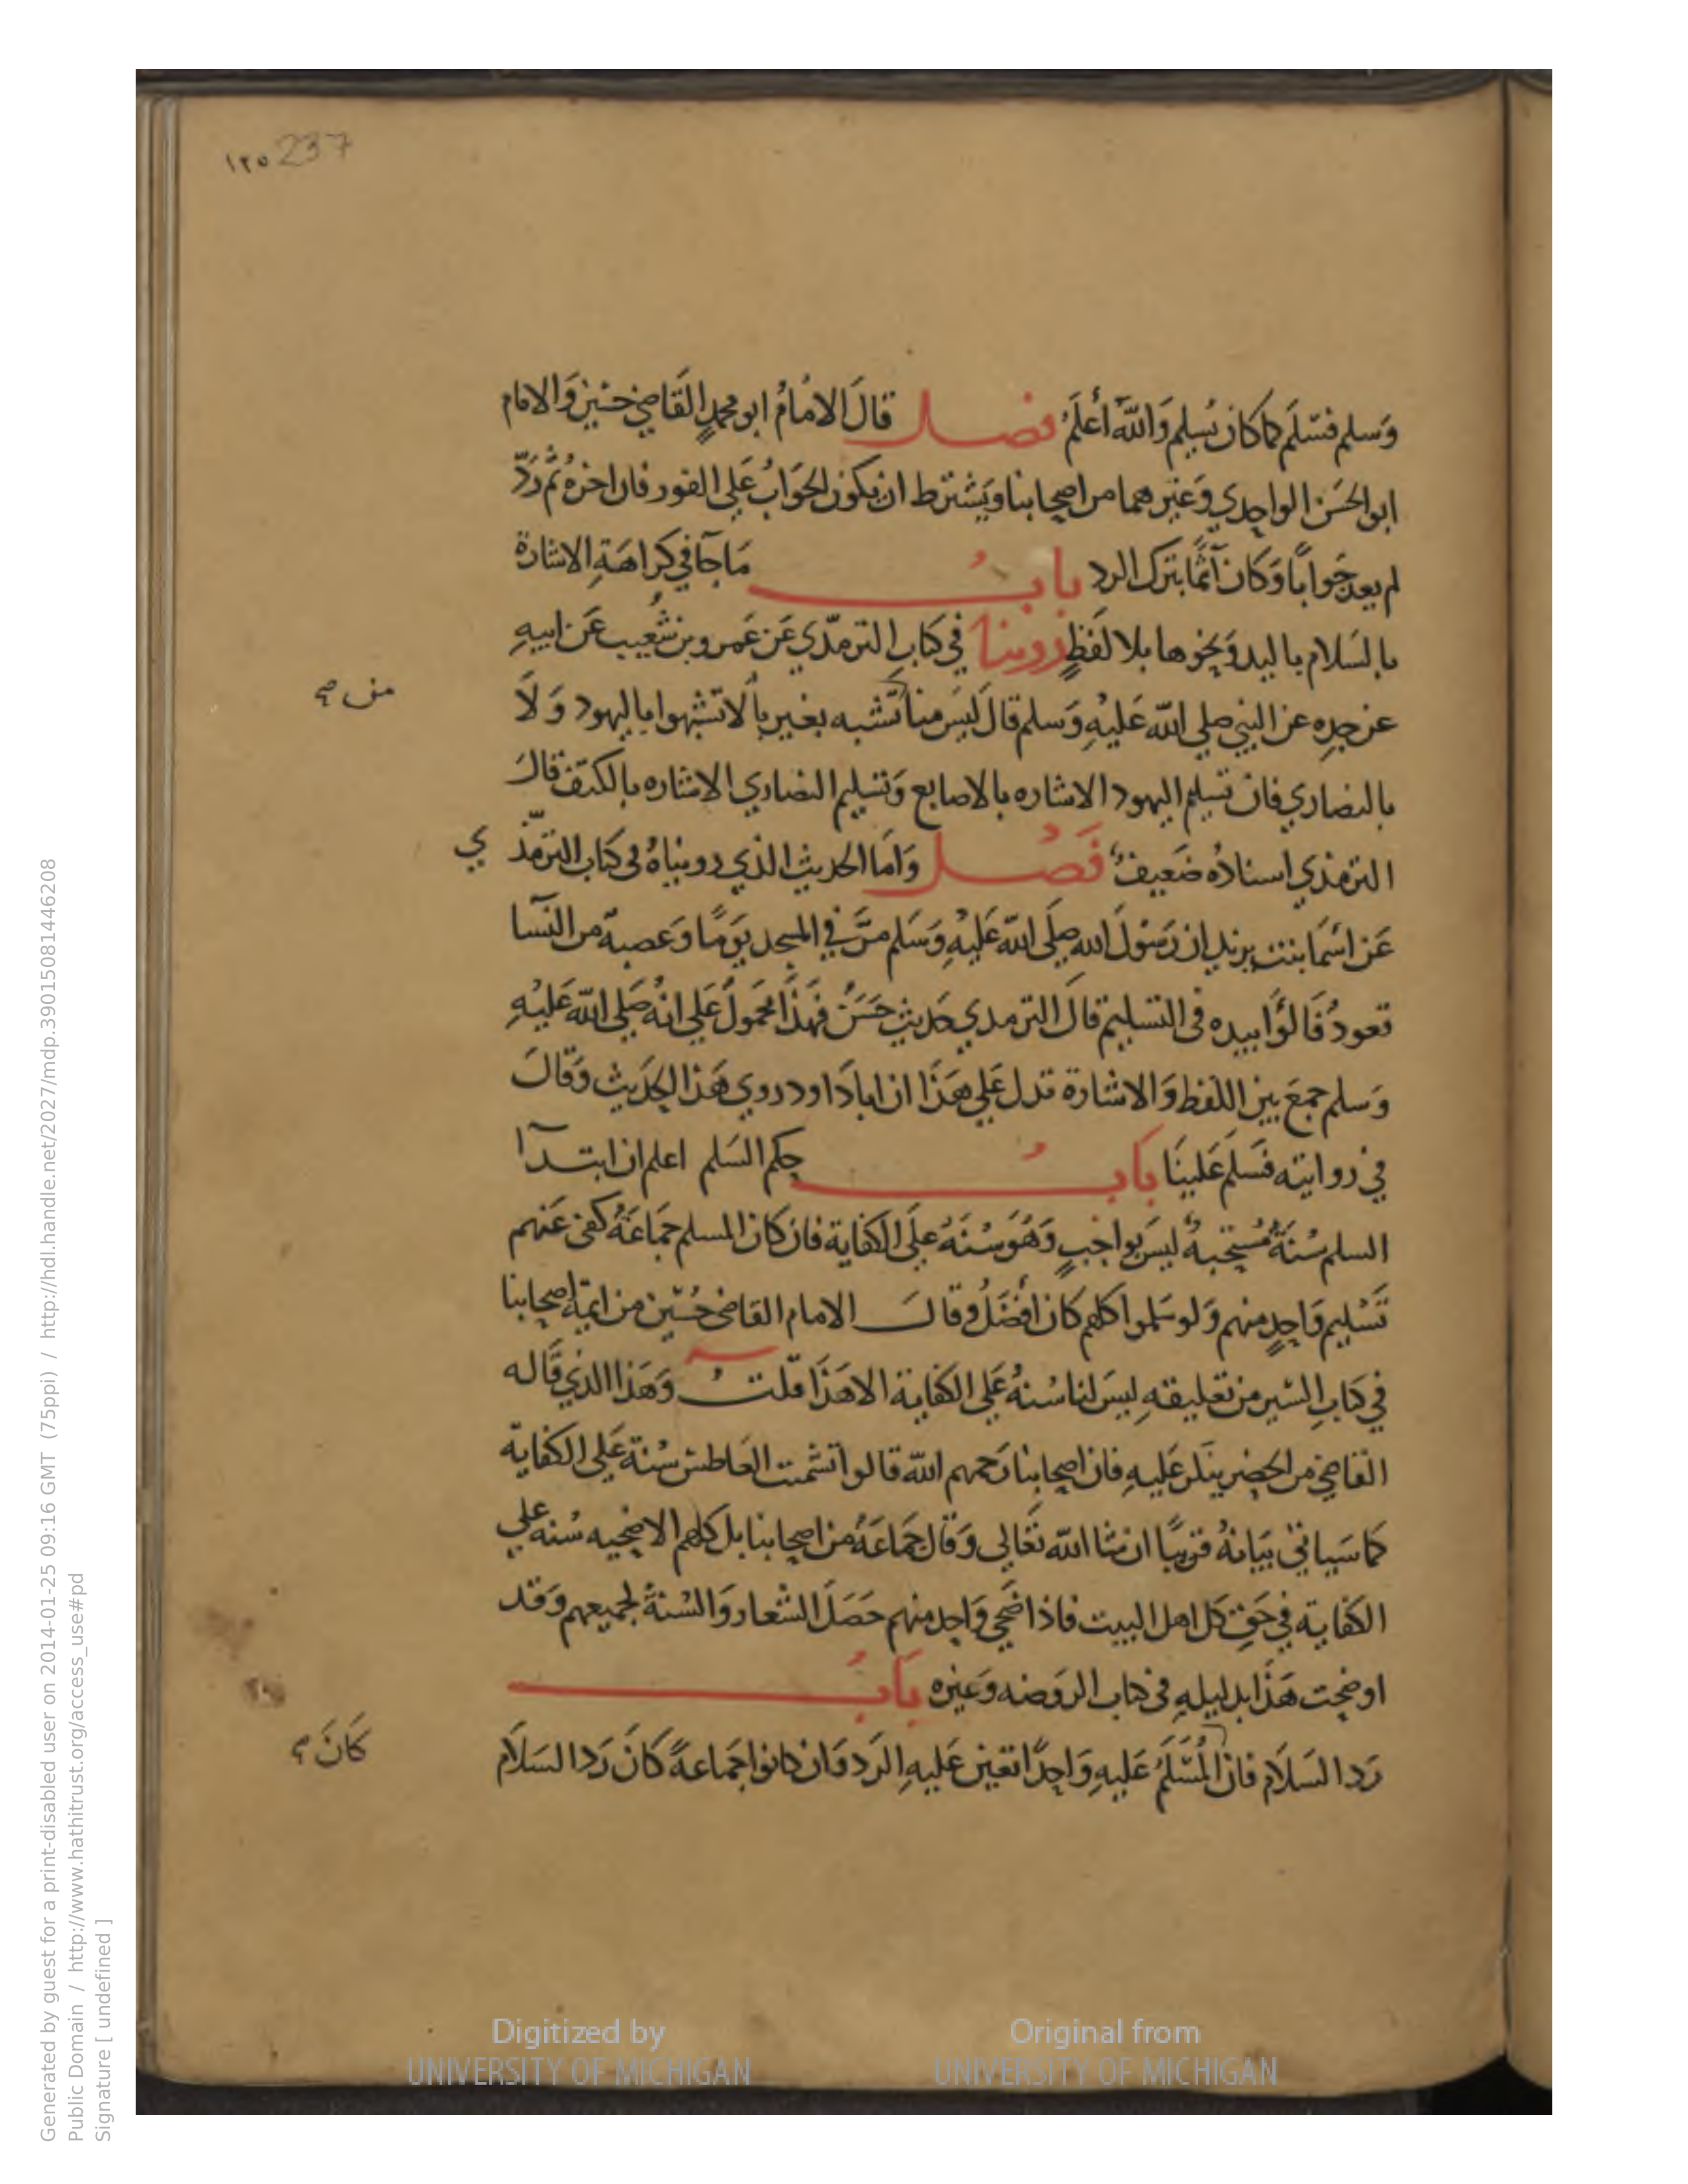 ١٢٥ 237
وَسلم فسّلَم كما كان يُسلِم وَاللّهُ أعلَمُ فصل قالَ الامَامُ ابو محمدٍ القَاضي حسَين وَالامام
ابو الحسَن الواحِدي وَغيرهما من اصحابنا وَيَشترط ان يكون الجَوَابُ عَلي الفور فان اخرهُ ثم رَدّ
لم يعد جَواباً وَكانَ آثماً بترك الرد بابُ مَا جآ في كراهَةِ الاشارة
بالسَلام باليد وَنحوها بلا لَفظٍ روينا في كتابِ الترمذي عَن عَمرو بن شعَيب عَن ابيهِ
عن جدِه عن النبي صلي اللّه عَليهِ وَسلم قالَ ليسَ منا تَشبه بغيرنا لا تشبهوا باليهود وَلَا
من صح
بالنصاري فان تسليم اليهود الاشاره بالاصابع وَتسليم النصاري الاشاره بالكتف قالَ
الترمذي اسنادُه ضَعيفٌ فَصُل وَاما الحديث الذي رويناهُ في كتاب الترمذ ي
عَن اسمَا بنت يزيد ان رَسُولَ الله صلَى اللّه عَليْهِ وَسَلم مرَّ في المسجد يَومًا وَعصبة من النسآ
تعودُ فَالوَا بيده في التسليم قالَ الترمدي حَديث حسَنٌ فهذَا محمَولٌ عَلي انهُ صَلي اللّه عَليْهِ
وَسلم جمَع بين اللفظ وَالاشارة تدل عَلي هَذَا ان ابا دَاود روي هَذا الحدَيث وَقالَ
في روايته فسَلم عَلينَا بَابُ حكم السَلم اعلم ان ابتدآ
السلم سُنةٌ مُستحَبهٌ ليسَ بواجبٍ وَهُوَ سُنَهُ علَى الكفاية فان كان المسلم جمَاعَةٌ كفى عَنهم
تَسْليم وَاحِدٍ منهم وَلو سَلموا كلهم كان افضَلُ وقالَ الامام القاضى حُسَين من ايمة اصحابنا
في كتابِ السّير من تعليقهِ ليسَ لنا سُنهُ عَلي الكفاية الا هَذَا قلتُ وَهَذا الذي قَاله
القاضي من الحصر ينكر عَليهِ فان اصحابنا رَحمهم اللّه قالوا تشمت العَاطش سُنة عَلي الكفاية
كما سَياتي بَيَانهُ قريبًا ان شا اللّه تعَالى وَقالَ جَمَاعَهُ من اصحابنا بل كلهم الاضحيه سُنه علي
الكفاية في حَقِ كل اهل البيت فاذا ضَحي وَاحد منهم حَصَلَ الشعار وَالسُنةُ لجميعهم وَقد
اوضحت هَذَا بدليلهِ في كتاب الروَضه وَغيره بَابُ
رَد السَلَام فان المُسَّلَمُ عَليهِ وَاحِدًا تعين عَليهِ الرَد وَان كانوا جَماعةً كانَ رَد السَلَام
كَانَ صح